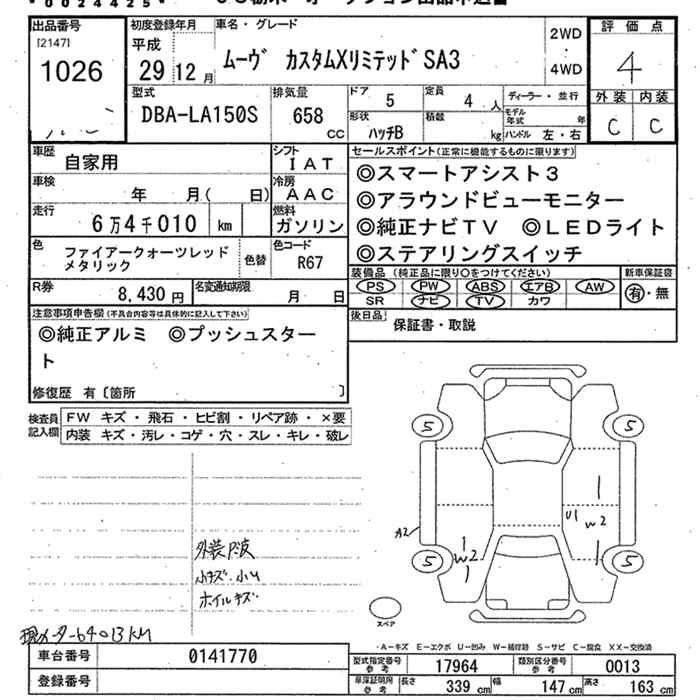 *0024425*
出品番号
[2147]
1026
初度登録年月
平成
29年12月
車名・グレード
ムーヴ カスタムXリミテッドSA3
2WD
・
4WD
評価点
4
外装 内装
C C
型式
DBA-LA150S
排気量
658
CC
ドア
5
定員
4 人
形状
ハッチB
積載
kg
ディーラー・並行
モデル年式 年
ハンドル 左・右
車歴
自家用
シフト
IAT
車検
年 月( 日)
冷房
AAC
走行
6万4千010 km
燃料
ガソリン
色
ファイアークォーツレッド
メタリック
色替
色コード
R67
R券
8,430円
名変通知期限
月 日
セールスポイント(正常に機能するものに限ります)
◎スマートアシスト3
◎アラウンドビューモニター
◎純正ナビTV ◎LEDライト
◎ステアリングスイッチ
装備品 (純正品に限り○をつけてください)
PS PW ABS エアB AW
SR ナビ TV カワ
新車保証書
有・無
後日品
保証書・取説
注意事項申告欄(不具合内容等は具体的に記入して下さい)
◎純正アルミ ◎プッシュスター
ト
修復歴 有〔箇所 〕
検査員
記入欄
FW キズ・飛石・ヒビ割・リペア跡・×要
内装 キズ・汚レ・コゲ・穴・スレ・キレ・破レ
5 5
U1 W2
A2
W2
5 5
スペア
小キズ・小U
ホイルキズ
現メーター64013KM
・A-キズ E-エクボ U-凹み W-補修跡 S-サビ C-腐食 XX-交換済
車台番号
0141770
登録番号
型式指定番号
参考
17964
類別区分番号
参考
0013
車庫証明用
参考
長さ 339 cm
幅 147 cm
高さ 163 cm